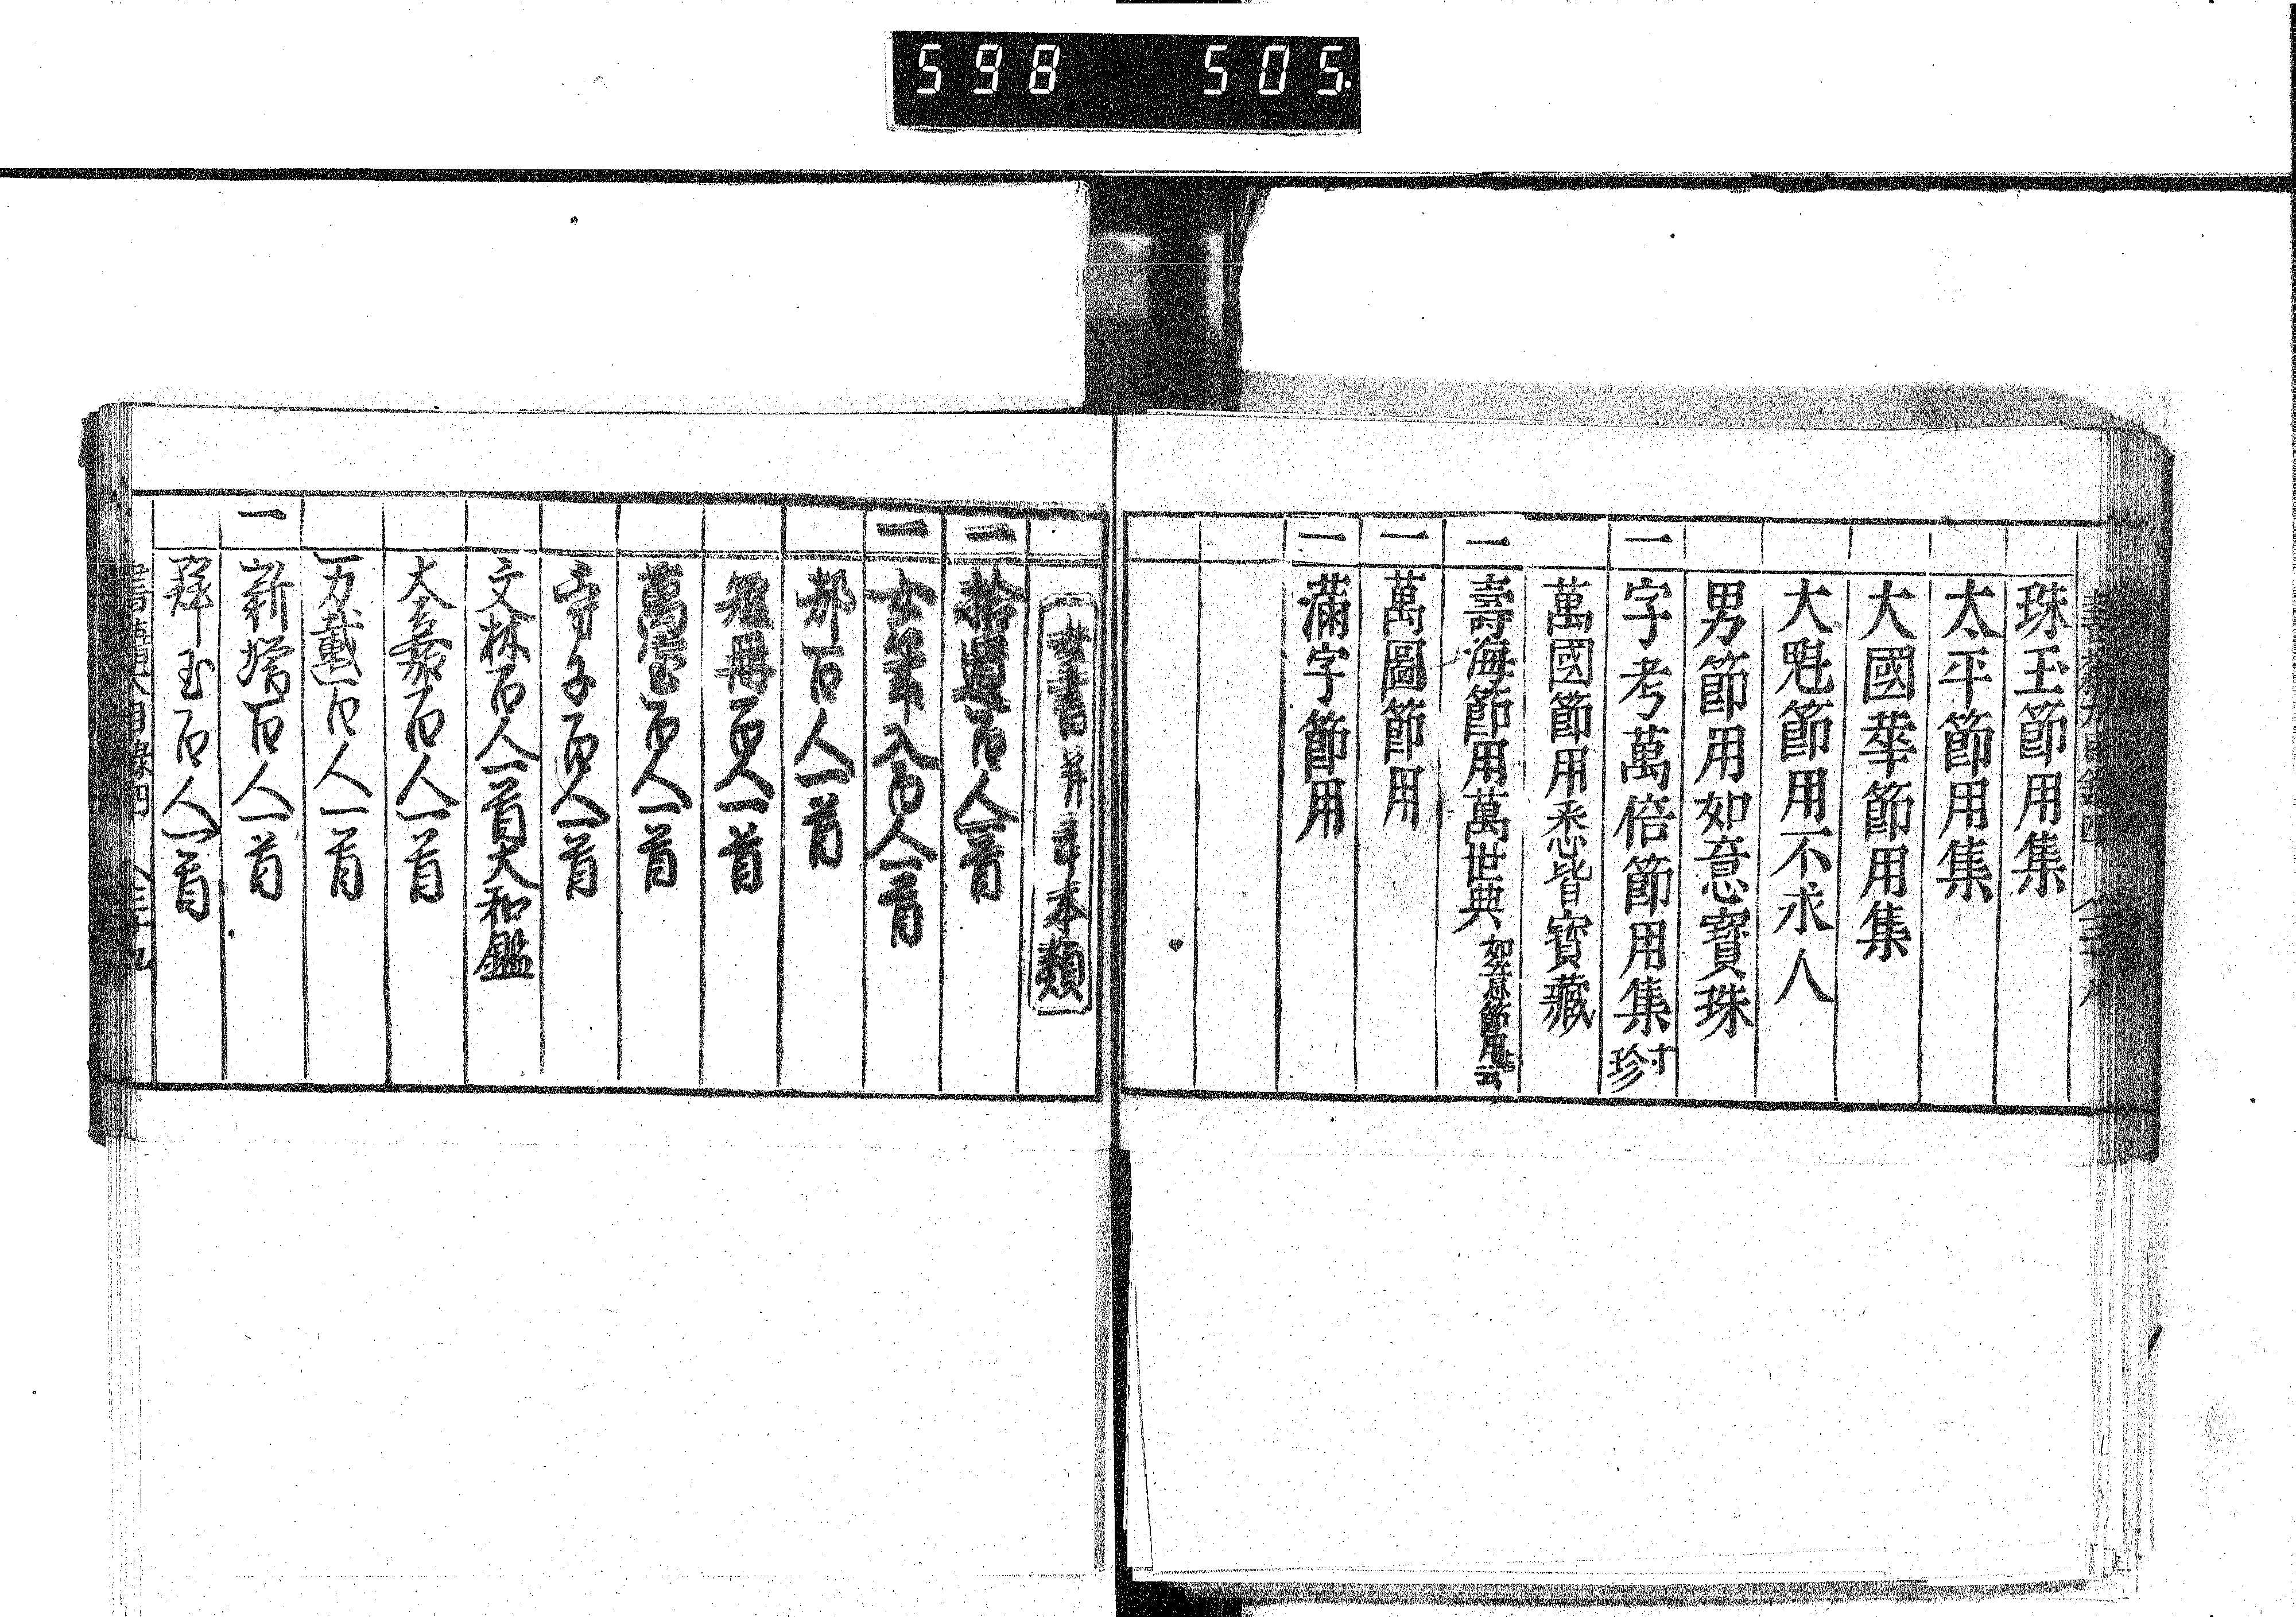 598 505
珠玉節用集
太平節用集
大國華節用集
大魁節用不求人
男節用如意寳珠
一 字考萬倍節用集 寸珍
萬國節用悉皆寳藏
一 壽海節用萬世典 如意節用
一 萬圖節用
一 滿字節用
女書并草本類
二 拾遺百人一首
一 女筆入百人一首
都百人一首
短冊百人一首
萬寳百人一首
百人一首
文林百人一首大和鑑
百人一首
万載百人一首
一 新増百人一首
玉百人一首